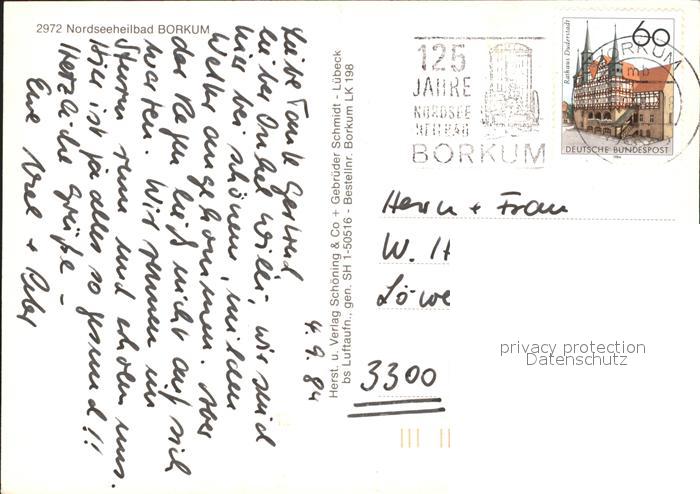 2972 Nordseeheilbad BORKUM
4.9.84
Liebe Tante Gertrud
lieber Onkel Willi, wir sind
hier bei schönem, milden
Wetter angekommen. Aber
der Regen ließ nicht auf sich
warten. Wir rennen im
Sturm rum und erholen uns.
Hier ist ja alles so gesund!!
Herzliche Grüße -
Eure +
Herst. u. Verlag Schöning & Co + Gebrüder Schmidt - Lübeck
bs Luftaufn., gen. SH 1-50516 - Bestellnr. Borkum LK 198
125
JAHRE
NORDSEE
HEILBAD
BORKUM
BORKUM
mb
60
Rathaus Duderstadt
DEUTSCHE BUNDESPOST
Herrn + Frau
W. H
Löwe
3300
privacy protection
Datenschutz